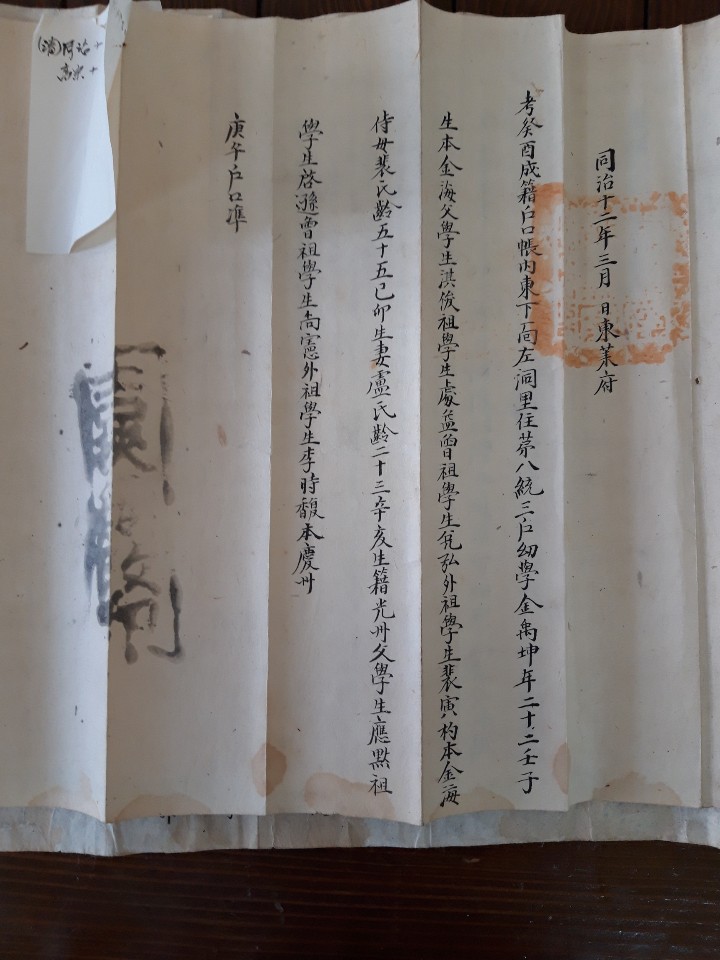 同治十二年三月 日東萊府
考癸酉成籍戶口帳內東下面左洞里住苐八統三戶幼學金禹坤年二十二壬子
生本金海父學生淇俊祖學生處益曾祖學生弘外祖學生裴寅杓本金海
侍母裴氏齡五十五己卯生妻盧氏齡二十三辛亥生籍光州父學生應點祖
學生啓遜曾祖學生尙憲外祖學生李時馥本慶州
庚午戶口準
(淸)同治十
高宗十